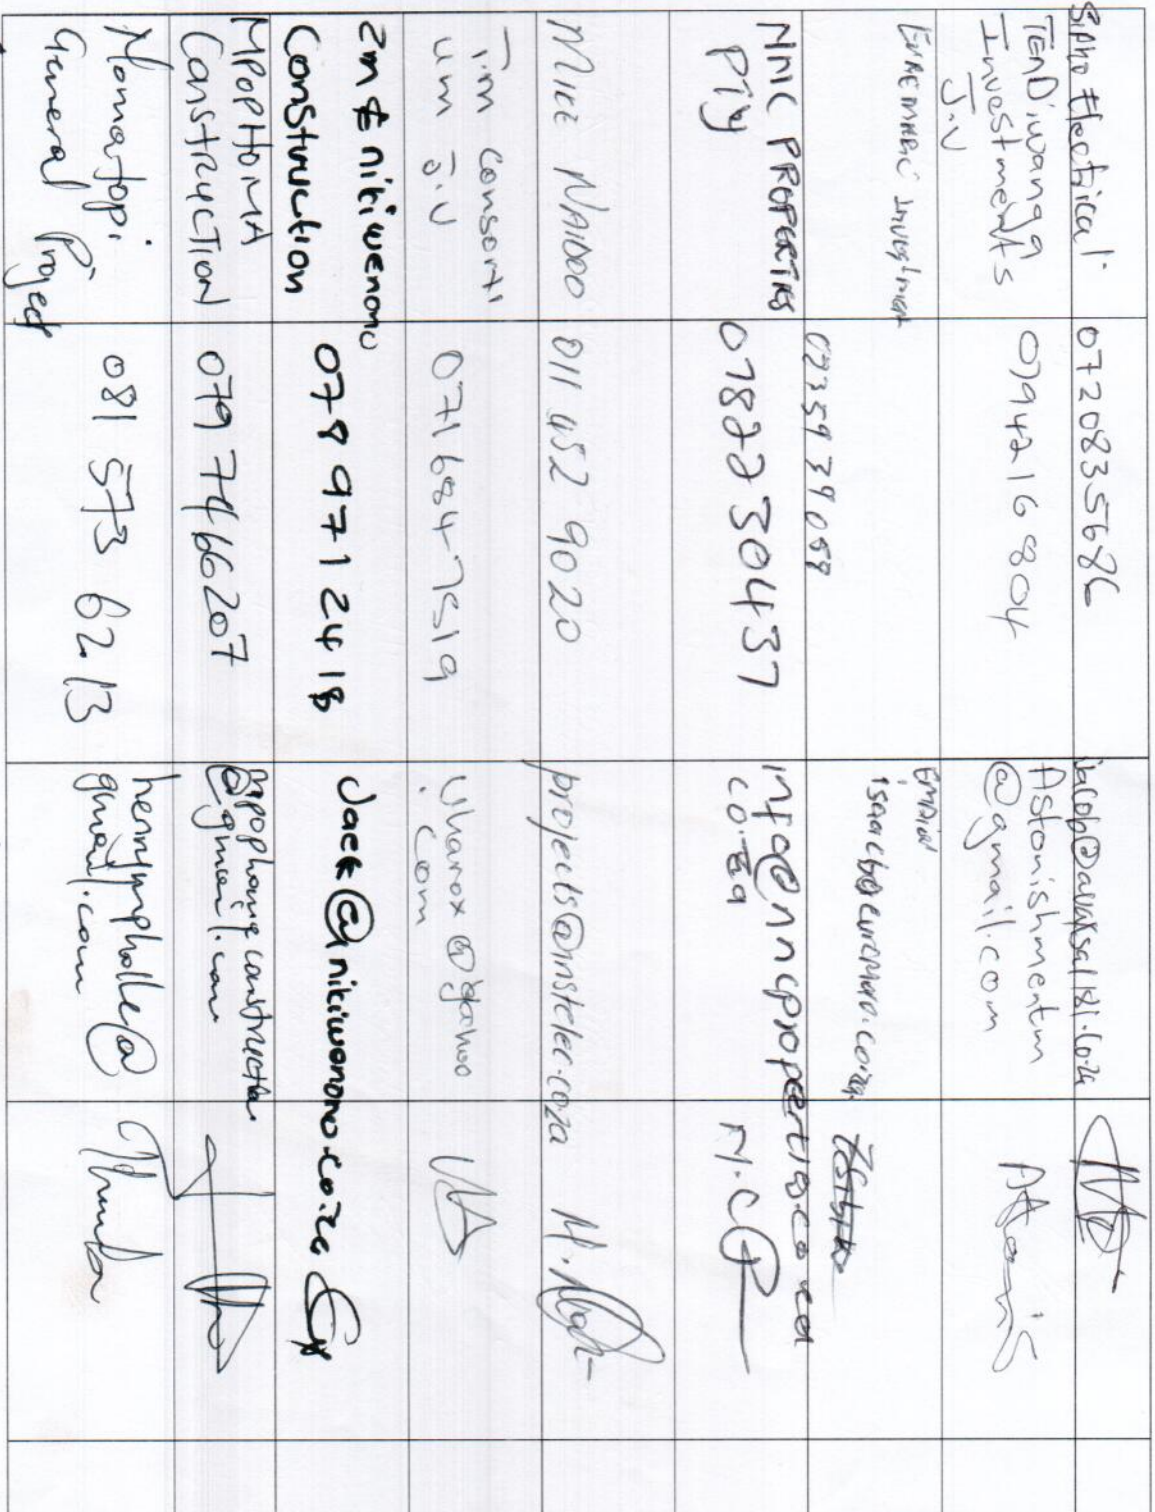 Sipho Electrical. 0720835686
TENDiwanga
Investments
J.V
0794216804
Astonishmentm
@gmail.com
EUREMARIC Investment
NNC PROPERTIES
Pty
0782230437
info@nncproperties.co.za
MIKE NAIDOO 011 452 9020 projects@instelec.co.za
Tim Consorti
um J.V
0716847519
Uharox@yahoo
.com
2m & nikiwenonu
Construction
078 971 2418 Jack@nikiwonono.co.za
MPOPHOMA
CONSTRUCTION
079 7466207
mpophomaconstruction
@gmail.com
Mamafopi
General Project
081 573 6213
henrympholle@
gmail.com